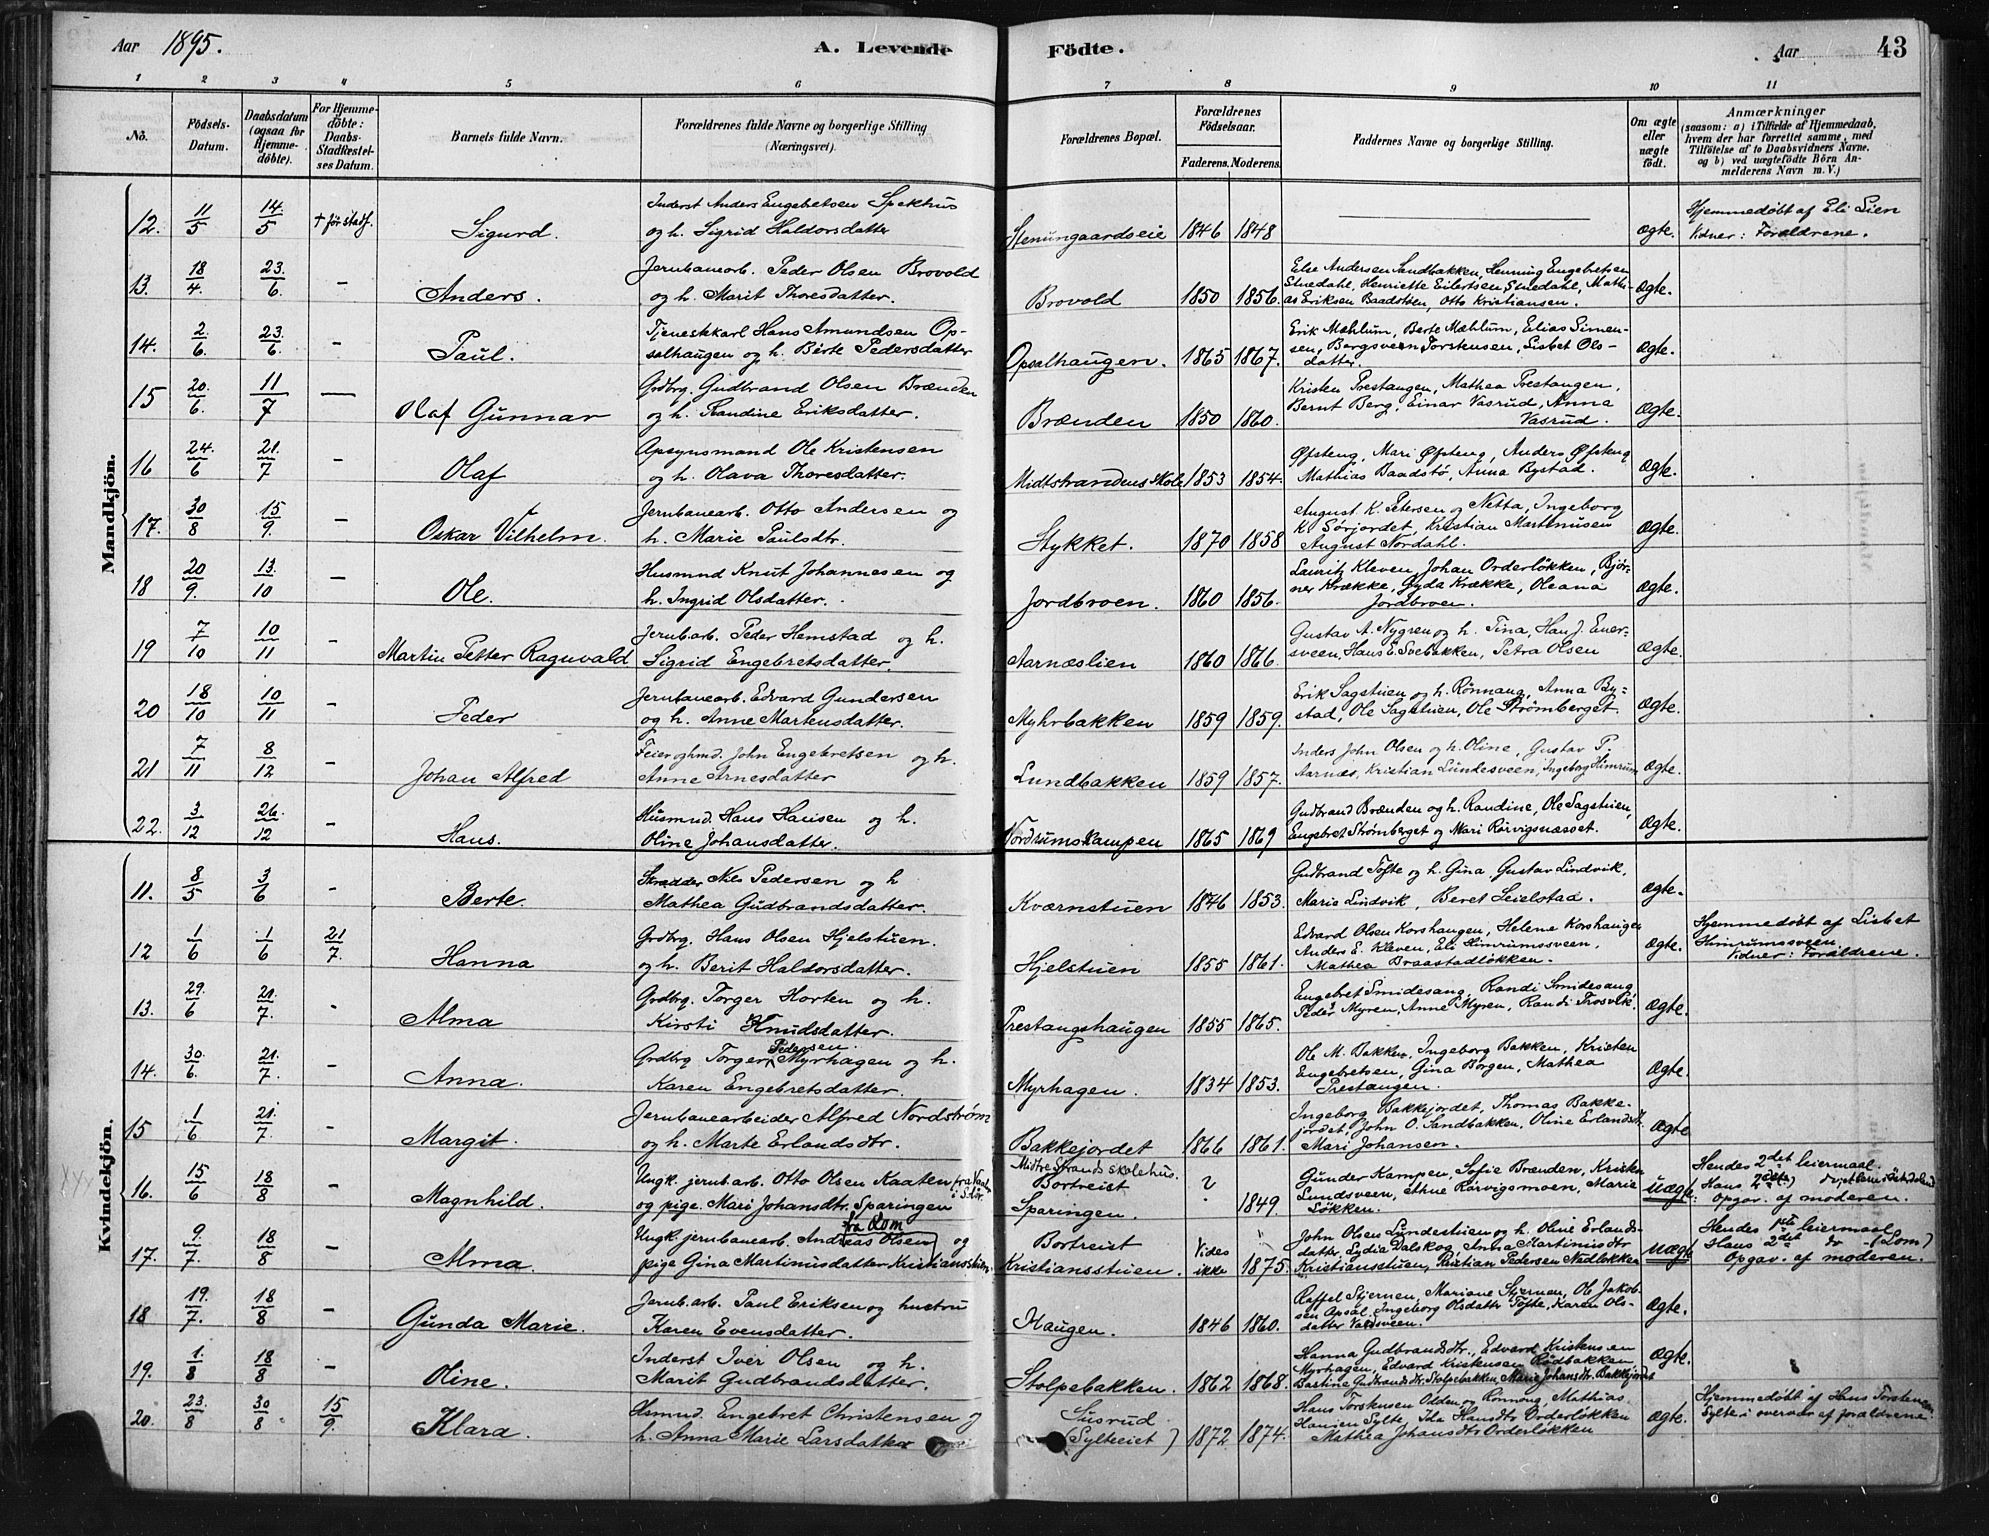 Aar 1895.
A. Levende Födte.
Aar
43
1 2 3 4 5 6 7 8 9 10 11
No.
Födsels-Datum.
Daabsdatum (ogsaa for Hjemme-döbte).
For Hjemme-döbte: Daabs-Stadfæstel-ses Datum.
Barnets fulde Navn.
Forældrenes fulde Navne og borgerlige Stilling (Næringsvei).
Forældrenes Bopæl.
Forældrenes Födselsaar.
Faderens. Moderens.
Faddernes Navne og borgerlige Stilling.
Om ægte eller uægte födt.
Anmærkninger
(saasom: a) i Tilfælde af Hjemmedaab, hvem der har forrettet samme, med Tilföielse af to Daabsvidners Navne, og b) ved uægtefödte Börn An-melderens Navn m. V.)
Mandkjön.
12. 11/5 14/5 † før stadf. Sigurd. Inderst Anders Engebretsen Spekhus
og h. Sigrid Haldorsdatter Stenumgaardseie 1846 1848 Ægte. Hjemmedøbt af Eli Lien
Vidner: Forældrene.
13. 18/4. 23/6. - Anders. Jernbanearb. Peder Olsen Brovold
og h. Marit Thoresdatter. Brovold 1850 1856. Else Andersen Sandbakken, Henning Engebretsen
Stuedahl, Henriette Eilertsen Stuedahl, Mathi-
as Eriksen Baadstøen, Otto Kristiansen. Ægte.
14. 2/6. 23/6. - Paul. Tjenestekarl Hans Amundsen Op-
salhaugen og h. Berte Pedersdatter Opsalhaugen. 1865 1867. Erik Mæhlum, Berte Mæhlum, Elias Simen-
sen, Bergsveen Torstensen, Lisbet Ols-
datter Ægte.
15 20/6. 11/7 - Olaf Gunnar Grdbrg. Gudbrand Olsen Brænden
og h. Randine Eriksdatter. Brænden 1850 1860. Kristen Prestangen, Mathea Prestangen,
Bernt Berg, Einar Vasrud, Anna
Vasrud. Ægte.
16 24./6 21./7 - Olaf Opsynsmand Ole Kristensen
og h. Olava Thoresdatter. Midtstrandens Skole 1853 1854. Øfsteng, Mari Øfsteng, Anders Øfsteng
Mathias Baadstø, Anna Bystad. Ægte.
17. 30/8 15/9. - Oskar Vilhelm. Jernbanearb. Otto Andersen og
h. Marie Paulsdtr. Stykket. 1870 1858 August K. Petersen og Netta, Ingeborg
K. Sørjordet, Kristian Martinusen
August Nordahl. Ægte.
18 20/9. 13./10 - Ole. Husmnd Knut Johannesen og
h. Ingrid Olsdatter. Jordbroen. 1860 1856. Lauritz Kleven, Johan Orderløkken, Bjør-
ner Krække, Gyda Krække, Oleana
Jordbroen. Ægte.
19 7/10 10/11 - Martin Petter Ragnvald Jernb.arb. Peder Hemstad og h.
Sigrid Engebretsdatter. Aarnæslien 1860 1866. Gustav A. Nygren og h. Tina, Han J. Ener-
sveen, Hans E. Svebakken, Petra Olsen Ægte.
20 18/10 10/11 - Peder Jernbanearb. Edvard Gundersen
og h. Anne Martensdatter. Myhrbakken 1859 1859. Erik Sagstuen og h. Rønnaug, Anna By-
stad, Ole Sagstuen, Ole Strømberget. Ægte.
21 7/11 8/12 - Johan Alfred Feier og hmd. John Engebretsen og h.
Anne Arnesdatter Lundbakken 1859 1857. Inders John Olsen og h. Oline, Gustav P.
Aarnæs, Kristian Lundesveen, Ingeborg Himrum Ægte.
22. 3/12 26./12 - Hans. Husmnd. Hans Hansen og h.
Oline Johansdatter. Nordrumskampen 1865 1869 Gudbrand Brænden og h. Randine, Ole Sagstuen,
Engebret Strømberget og Mari Rørvigsnæsset. Ægte.
Kvindekjön.
11. 8/5 3/6 - Berte. Skrædder Nils Pedersen og h
Mathea Gudbrandsdatter. Kværnstuen 1846 1853. Gudbrand Tofte og h. Gina, Gustav Lindvik,
Marie Lindvik, Beret Leielstad. Ægte.
12 1/6 1/6 21/7. Hanna Grdbrg. Hans Olsen Hjelstuen.
og h. Berit Haldorsdatter. Hjelstuen 1855 1861. Edvard Olsen Korshaugen, Helene Korshaugen
Anders E. Kleven, Eli Himrumssveen,
Mathea Braastadløkken. Ægte. Hjemmedøbt af Lisbet
Himrumssveen.
Vidner: Forældrene.
13. 29./6 21./7. - Alma Grdbrg. Torger Horten og h.
Kirsti Knudsdatter. Prestangshaugen 1855 1865. Engebret Smidesang, Randi Smidesang,
Peder Myren, Anne Myren, Randi Trosvik. Ægte.
14. 30./6. 21./7. - Anna. Grdbrg Torger Pedersen Myrhagen og h.
Karen Engebretsdatter. Myrhagen. 1834 1853. Ole M. Bakken, Ingeborg Bakken, Kristen
Engebretsen, Gina Borgen, Mathea
Prestangen. Ægte.
15 1/6 21./7. - Margit. Jernbanearbeider Alfred Nordstrøm
og h. Marte Erlandsdtr. Bakkejordet 1866 1861. Ingeborg Bakkejordet, Thomas Bakke-
jordet, John O. Sandbakken, Oline Erlandsdtr.
Mari Johansen. Ægte
16. 15/6 18/8 - Magnhild. Ungk. jernb.arb. Otto Olsen Kaaten
og pige. Mari Johansdtr. Sparingen Midtre Strands skolehus.
Bortreist
Sparingen. ? 1849. Gunder Kampen, Sofie Brænden, Kristen
Lundsveen, Rørvigsmoen, Marie
Løkken. Uægte. Hendes 2det leiermaal.
Hans 2det
Opgav. af moderen.
17. 9./7. 18/8 - Alma. Ungk. jernbanearb. Andreas Olsen fra Lom og
pige Gina Martinusdatter Kristiansstuen. Bortreist
Kristiansstuen. Vides ikke 1875. John Olsen Lundestuen og h. Oline Erlands-
datter, Lydia Dalskog, Anna Martinusdtr
Kristiansstuen, Kristian Pedersen Nedløkken Uægte Hendes 1ste leiermaal
Hans 2det do - (Lom)
Opgav. af moderen.
18 19./7. 18/8 - Gunda Marie. Jernb.arb. Paul Eriksen og hustru
Karen Evensdatter. Haugen. 1846 1860. Raffel Stjernen, Mariane Stjernen, Ole Jakob-
sen Opsal, Ingeborg Olsdatter Tofte, Karen Ols-
datter Valdsveen. Ægte.
19. 1./8 18/8 - Oline. Inderst Iver Olsen og h.
Marit Gudbrandsdatter. Stolpebakken. 1862 1868. Hanna Gudbrandsdtr., Edvard Kristensen
Myrhagen, Edvard Kristensen Rødbakken,
Bastine Gudbrandsdtr. Stolpebakken, Marie Johansdtr. Bakkejordet Ægte.
20. 23./8 30/8 15/9. Klara. Hsmnd. Engebret Christensen og
h. Anna Marie Larsdatter Susrud
(Sylteiet) 1872 1874. Hans Torstensen Odden og Rønnoug, Mathias
Hansen Sylte, Ida Hansdtr Orderløkken
Mathea Johansdtr Orderløkken Ægte. Hjemmedøbt af Hans Torstensen
Sylte i overvær af forældrene.